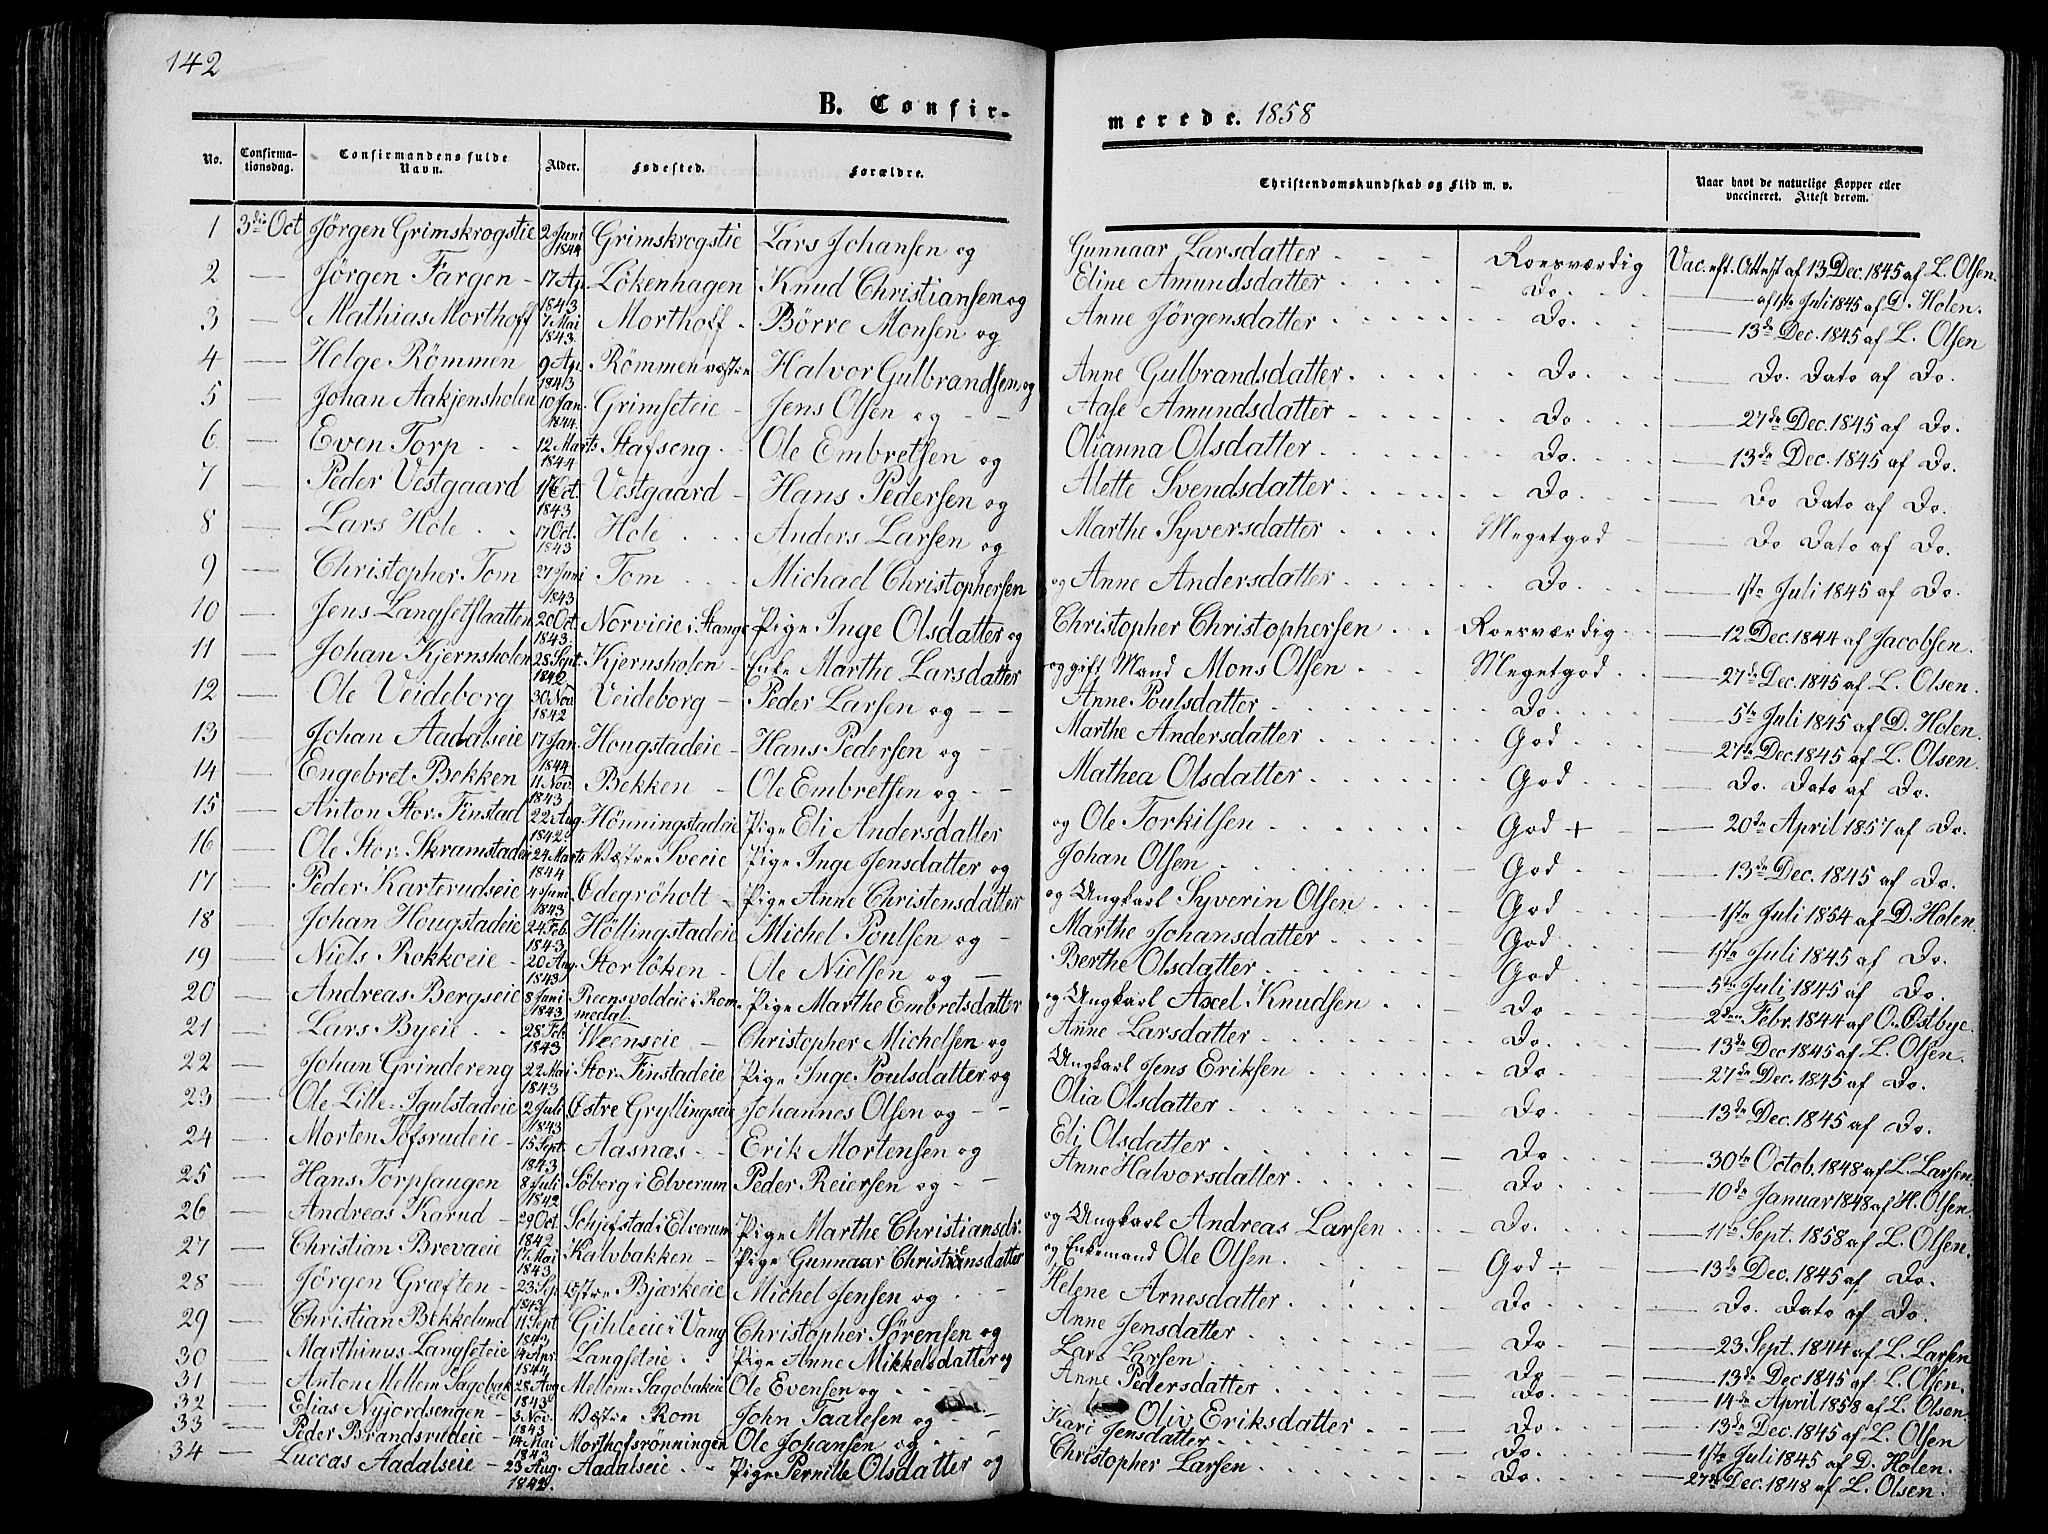 142
B. Confir-
merede. 1858
No. Confirma-tionsdag. Confirmandens fulde Navn. Alder. Fødested. Forældre. Christendomskundskab og Flid m. v. Naar havt de naturlige Kopper eller vaccineret. Attest derom.
1 3die Oct Jörgen Grimskrogstie 2 Juni 1844 Grimskrogstie Lars Johansen og Gunnaar Larsdatter Roesværdig Vac. eft. Attest af 13 Dec. 1845 af L. Olsen.
2 — Jörgen Fargen 17 Ap. 1843 Lökenhagen Knud Christiansen og Eline Amundsdatter Do. — af 1ste Juli 1845 af D. Holen.
3 — Mathias Morthoff 7 Mai 1843 Morthoff Börre Monsen og Anne Jörgensdatter Do. — 13de Dec. 1845 af L. Olsen
4 — Helge Römmen 9 Ap. 1843 Römmen vestre Halvor Gulbrandsen og Anne Gulbrandsdatter Do. Do. Dato af Do.
5 — Johan Aakjensholen 10 Jan. 1844 Grimseteie Jens Olsen og Aase Amundsdatter Do. — 27de Dec. 1845 af Do.
6 — Even Torp 12 Marts 1844 Stafseng Ole Embretsen og Olianna Olsdatter Do. — 13de Dec. 1845 af Do.
7 — Peder Vestgaard Oct. 1843 Vestgaard Hans Pedersen og Alette Svendsdatter Do — Do Dato af Do.
8 — Lars Hole 17 Oct. 1843 Hole Anders Larsen og Marthe Syversdatter Megetgod — Do Dato af Do.
9 — Christopher Tom 27 Juni 1843 Tom Michael Christophersen og Anne Andersdatter Do. — 1ste Juli 1845 af Do.
10 — Jens Langsetslaatten 20 Oct. 1843 Norvieie i Stange Pige Inge Olsdatter og Christopher Christophersen Roesværdig — 12 Dec. 1844 af Jacobsen.
11 — Johan Kjernsholen 28 Sept. 1842 Kjernsholen Enke Marthe Larsdatter og gift Mand Mons Olsen Megetgod — 27de Dec. 1845 af L. Olsen.
12 — Ole Veideborg 30 Nov 1842 Veideborg Peder Larsen og Anne Poulsdatter Do. — 5te Juli 1845 af D. Holen.
13 — Johan Aadalseie 17 Jan. 1844 Hougstadeie Hans Pedersen og Marthe Andersdatter God — 27de Dec. 1845 af L. Olsen.
14 — Engebret Bekken 11 Nov. 1843 Bekken Ole Embretsen og Mathea Olsdatter God Do. Dato af Do.
15 — Anton Stor-Finstad 22 Aug. 1842 Hönningstadeie Pige Eli Andersdatter og Ole Torkilsen God + — 20de April 1857 af Do.
16 — Ole Stor-Skramstadeie 24 Marts 1844 Vestre Sveeie Pige Inge Jensdatter og Johan Olsen God — 13de Dec. 1845 af Do.
17 — Peder Karterudseie 4 Juni 1843 Ödegröholt Pige Anne Christensdatter og Ungkarl Syverin Olsen God — 1ste Juli 1854 af D. Holen.
18 — Johan Hougstadeie 24 Feb. 1843 Höllingstadeie Michel Poulsen og Marthe Johansdatter God — 1ste Juli 1845 af Do.
19 — Niels Rokkoeie 20 Aug. 1843 Storlöken Ole Nielsen og Berthe Olsdatter God — 5te Juli 1845 af Do.
20 — Andreas Bergseie 8 Juni 1843 Reensvoldeie i Rommedal. Pige Marthe Embretsdatter og Ungkarl Axel Knudsen Do — 2den Febr. 1844 af O. Østbye.
21 — Lars Byeie 28 Feb 1843 Weenseie Christopher Michelsen og Anne Larsdatter Do. — 13de Dec 1845 af L. Olsen.
22 — Johan Grindereng 22 Mai 1843 Stor-Finstadeie Pige Inge Poulsdatter og Ungkarl Jens Eriksen Do — 27de Dec. 1845 af Do.
23 — Ole Lille-Igulstadeie 2 Juli 1843 Østre Gryllingseie Johannes Olsen og Olia Olsdatter Do — 13de Dec. 1845 af Do.
24 — Morten Tofsrudeie 15 Sept. 1843 Aasnas Erik Mortensen og Eli Olsdatter Do. — 30te Octob. 1848 af L. Larsen.
25 — Hans Torpsaugen 8 Juli 1842 Söberg i Elverum Peder Reiersen og Anne Halvorsdatter Do. — 10de Januar 1848 af H. Olsen.
26 — Andreas Karud 29 Oct. 1842 Schjefstad i Elverum Pige Marthe Christiansdr. og Ungkarl Andreas Larsen Do. — 11te Sept. 1858 af L. Olsen.
27 — Christian Brevaeie 17 Mai 1843 Kalvbakken Pige Gunnaar Christiansdatter og Enkemand Ole Olsen God ÷ — 13de Dec. 1845 af Do.
28 — Jörgen Græften 23 Sep. 1843 østre Bjærkeeie Michel Jensen og Helene Arnesdatter Do — Do. Dato af Do.
29 — Christian Bekkelund 11 Sept 1843 Gihleeie i Vang Christopher Sörensen og Anne Jensdatter Do — 23 Sept. 1844 af L. Larsen
30 — Marthinus Langseteie 14 Apr. 1844 Langseteie Pige Anne Mikkelsdatter og Lars Larsen Do — 13de Dec 1845 af L. Olsen.
31 — Anton Mellem Sagobakeie 28 Aug 1843 Mellem-Sagobakeie Ole Evensen og Anne Pedersdatter Do. — 14de April 1858 af L. Olsen
32 — Elias Nyjordsengen 3 Nov. 1843 Vestre Rom John Taalesen og Oliv Eriksdatter Do — 13de Dec. 1845 af L. Olsen
33 — Peder Brandsrudeie 14 Mai 1843 Morthofsrönningen Ole Johansen og Kari Jensdatter Do. — 1ste Juli 1845 af D. Holen.
34 — Luccas Aadalseie 23 Aug. 1842. Aadalseie Pige Pernille Olsdatter og Christopher Larsen Do. — 27de Dec. 1848 af L. Olsen.